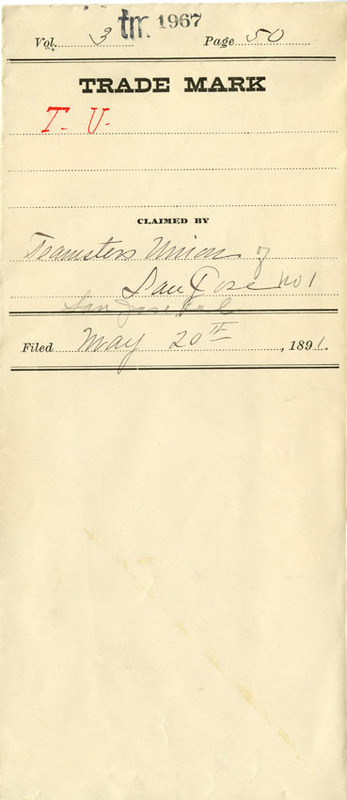 tm 1967
Vol. 3 Page 50
TRADE MARK
T. U.
CLAIMED BY
Teamsters Union of
San Jose No 1
San Jose, Cal
Filed May 20TH, 1891.